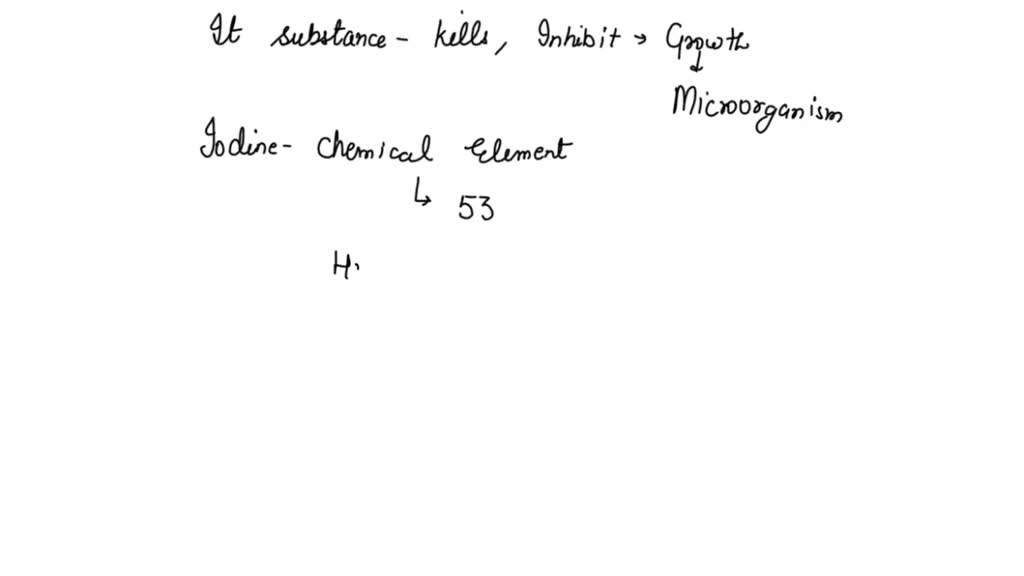 It substance - kills, Inhibit → Growth
↓
Microorganism
Iodine - Chemical Element
↳ 53
H